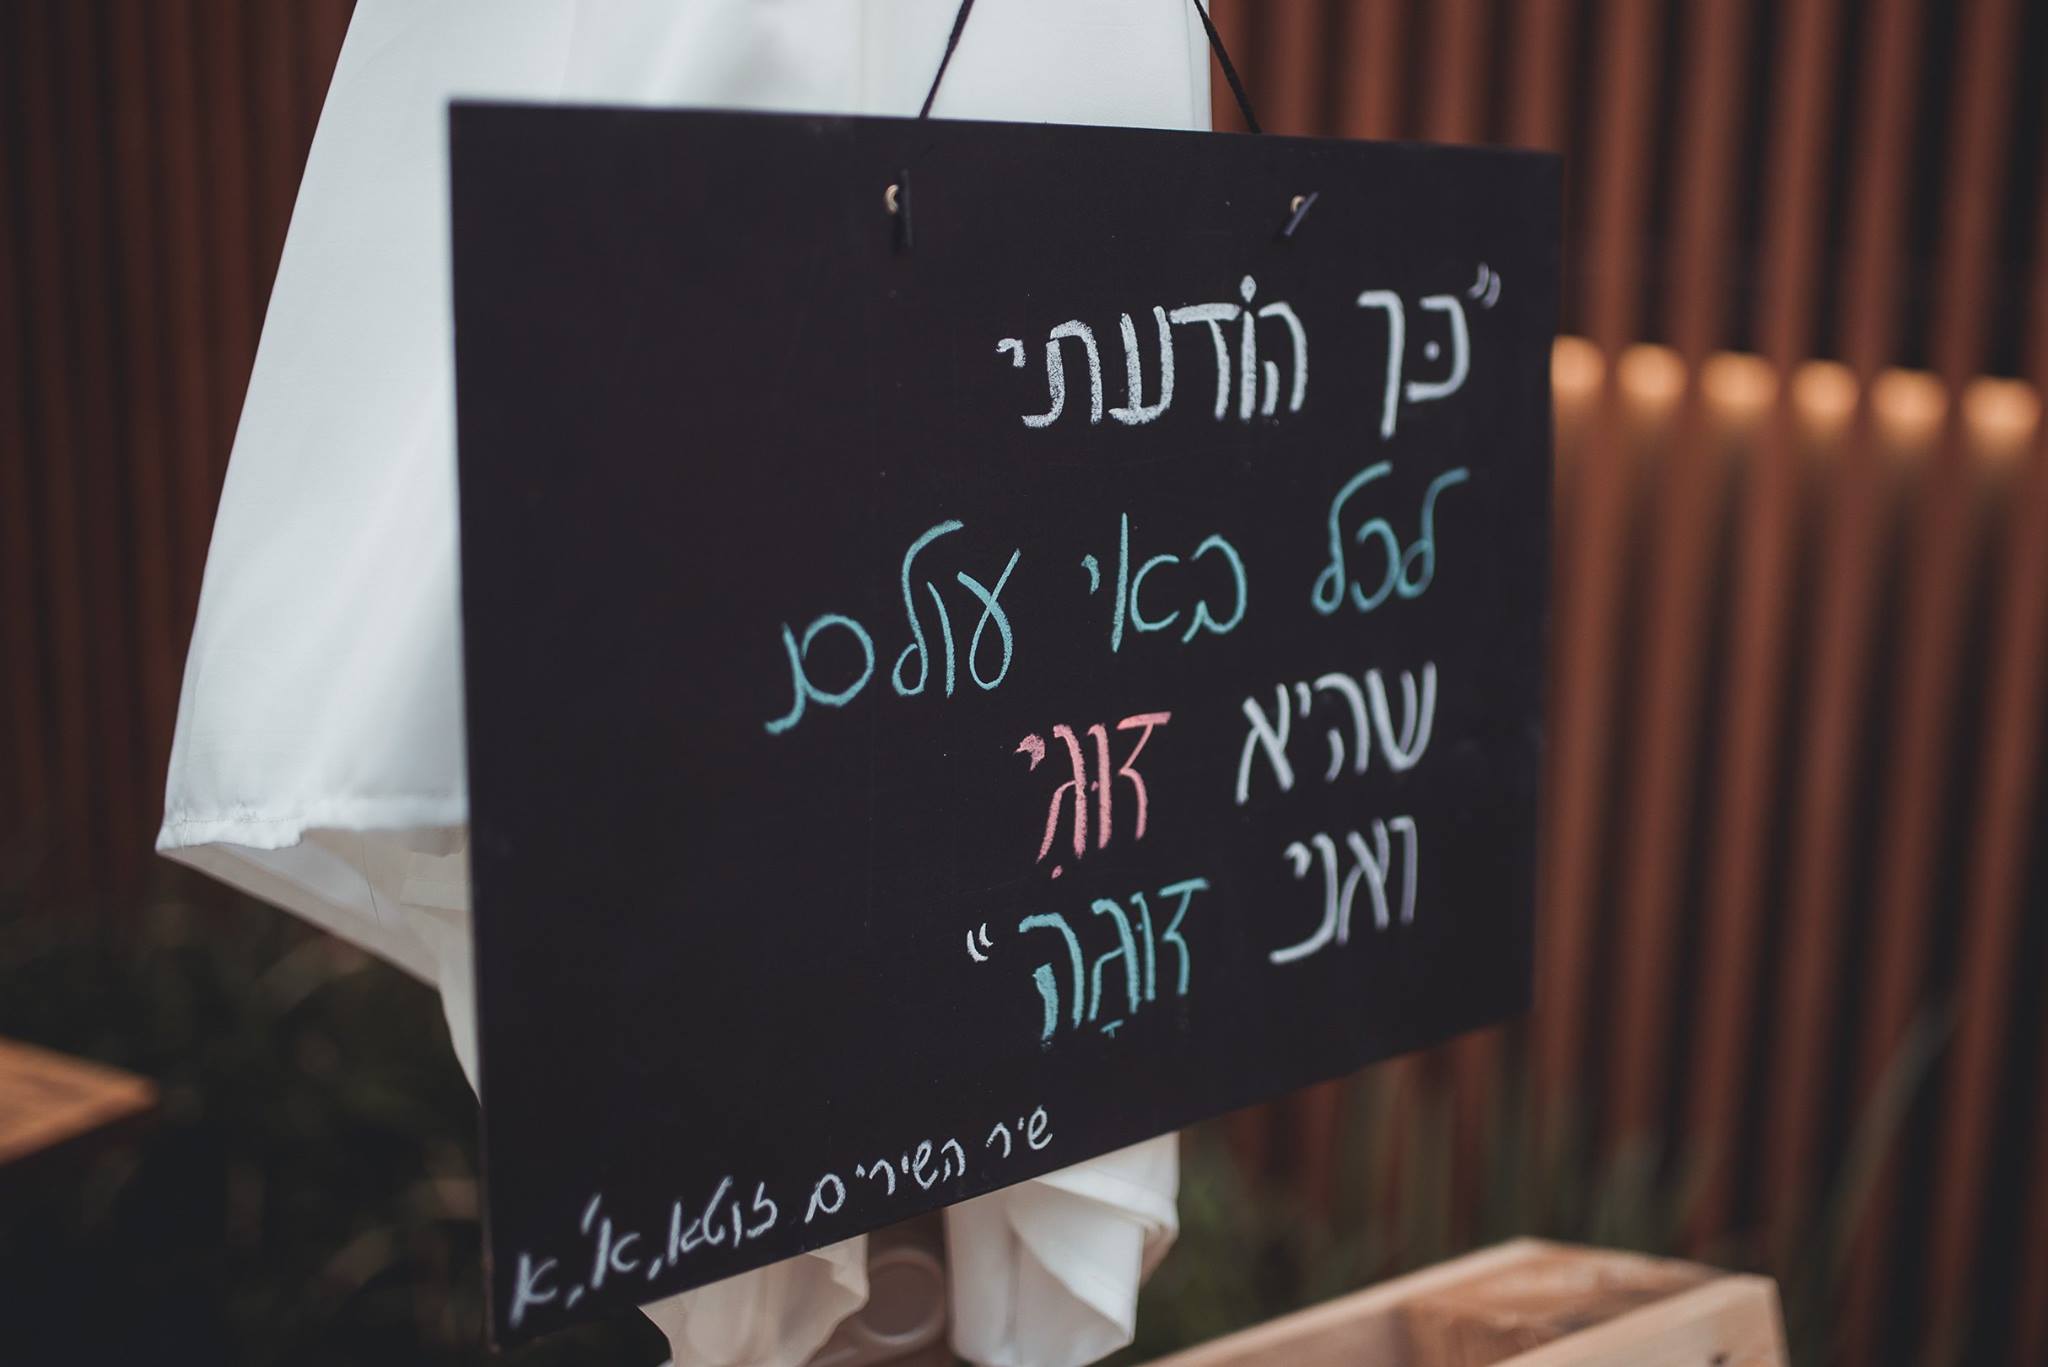 "כּך הוֹדעתי
לכל באי עולם
שהיא דוּגִי
ואני דוּגָה"
שיר השירים זוטא, א', א